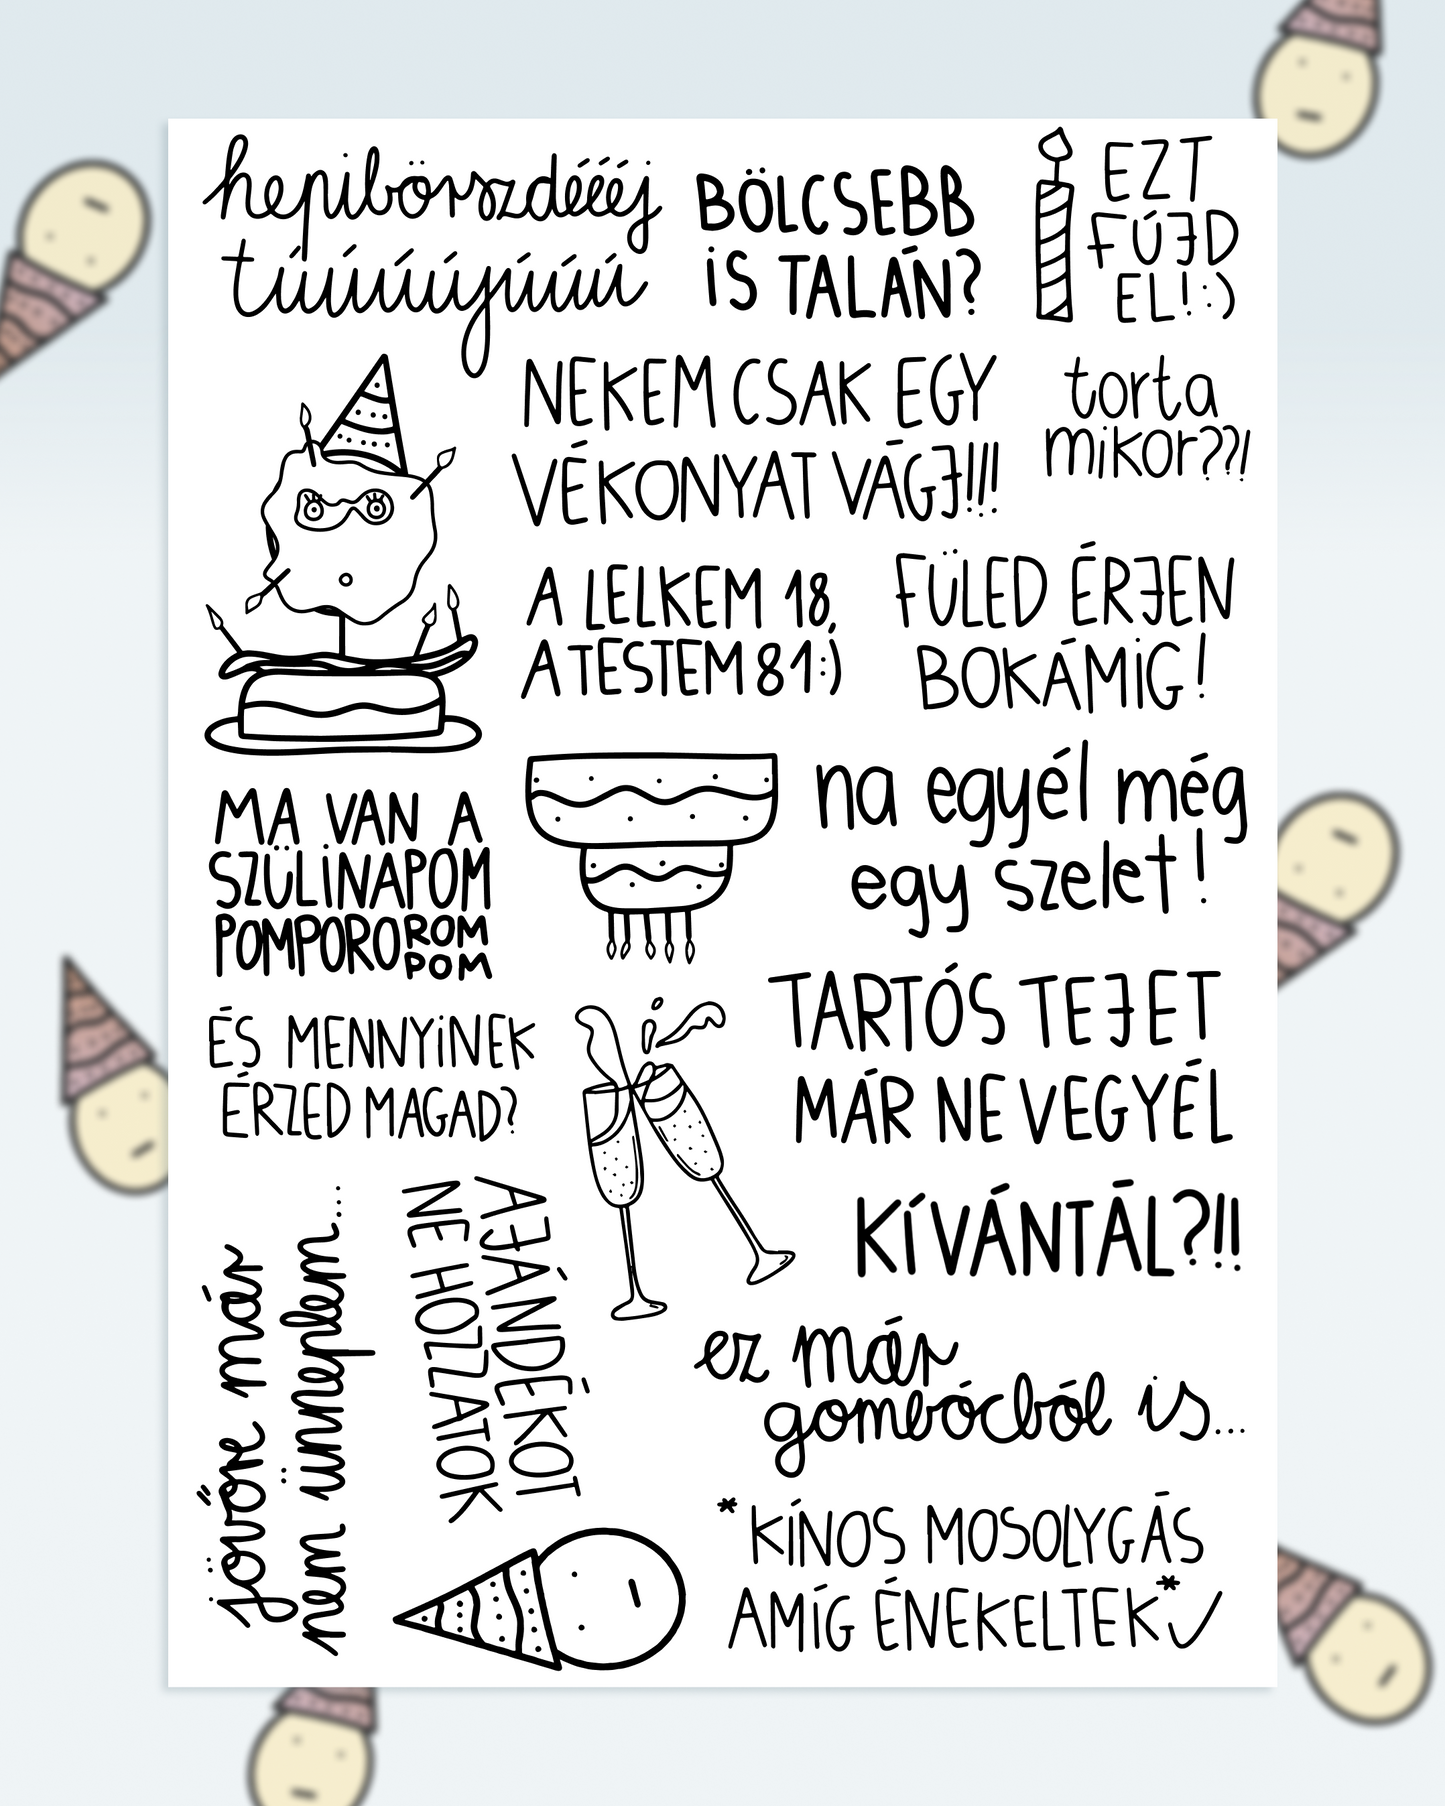 hepibörszdééééj
túúúúúyúúúú
BÖLCSEBB
IS TALÁN?
EZT
FÚJD
EL! :)
NEKEM CSAK EGY
VÉKONYAT VÁGJ!!!
torta
mikor??!
A LELKEM 18,
A TESTEM 81 :)
FÜLED ÉRJEN
BOKÁMIG!
MA VAN A
SZÜLINAPOM
POMPOROROM
POM
na egyél még
egy szelet!
ÉS MENNYINEK
ÉRZED MAGAD?
TARTÓS TEJET
MÁR NE VEGYÉL
KÍVÁNTÁL?!!
jövőre már
nem ünneplem....
AJÁNDÉKOT
NE HOZZATOK
ez már
gombócból is...
*KÍNOS MOSOLYGÁS
AMÍG ÉNEKELTEK*✓